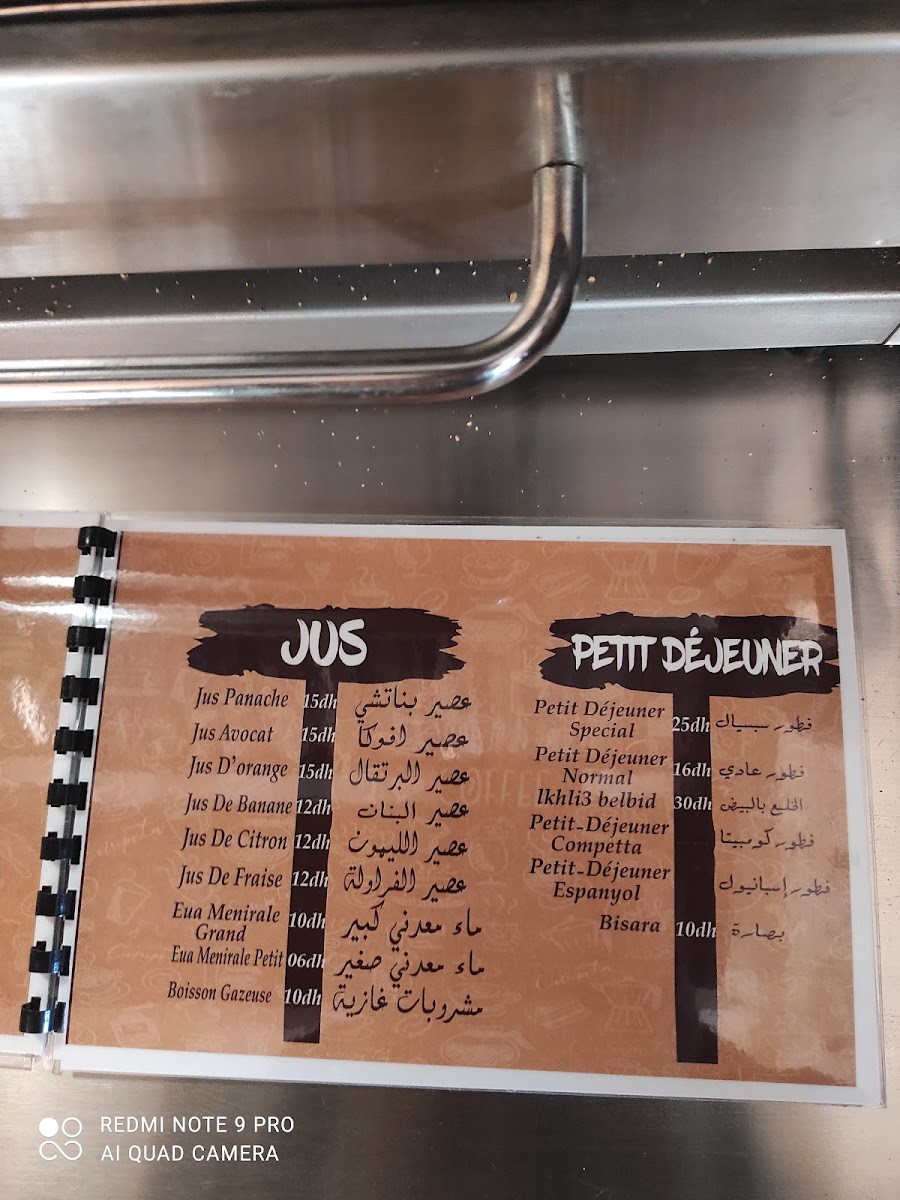 JUS
Jus Panache 15dh عصير بناتشي
Jus Avocat 15dh عصير افوكا
Jus D'orange 15dh عصير البرتقال
Jus De Banane 12dh عصير البنان
Jus De Citron 12dh عصير الليمون
Jus De Fraise 12dh عصير الفراولة
Eua Menirale
Grand 10dh ماء معدني كبير
Eua Menirale Petit 06dh ماء معدني صغير
Boisson Gazeuse 10dh مشروبات غازية
PETIT DÉJEUNER
Petit Déjeuner
Special 25dh فطور سبسيال
Petit Déjeuner
Normal 16dh فطور عادي
lkhli3 belbid 30dh الخليع بالبيض
Petit-Déjeuner
Competta فطور كومبيتا
Petit-Déjeuner
Espanyol فطور إسبانيول
Bisara 10dh بصارة
REDMI NOTE 9 PRO
AI QUAD CAMERA